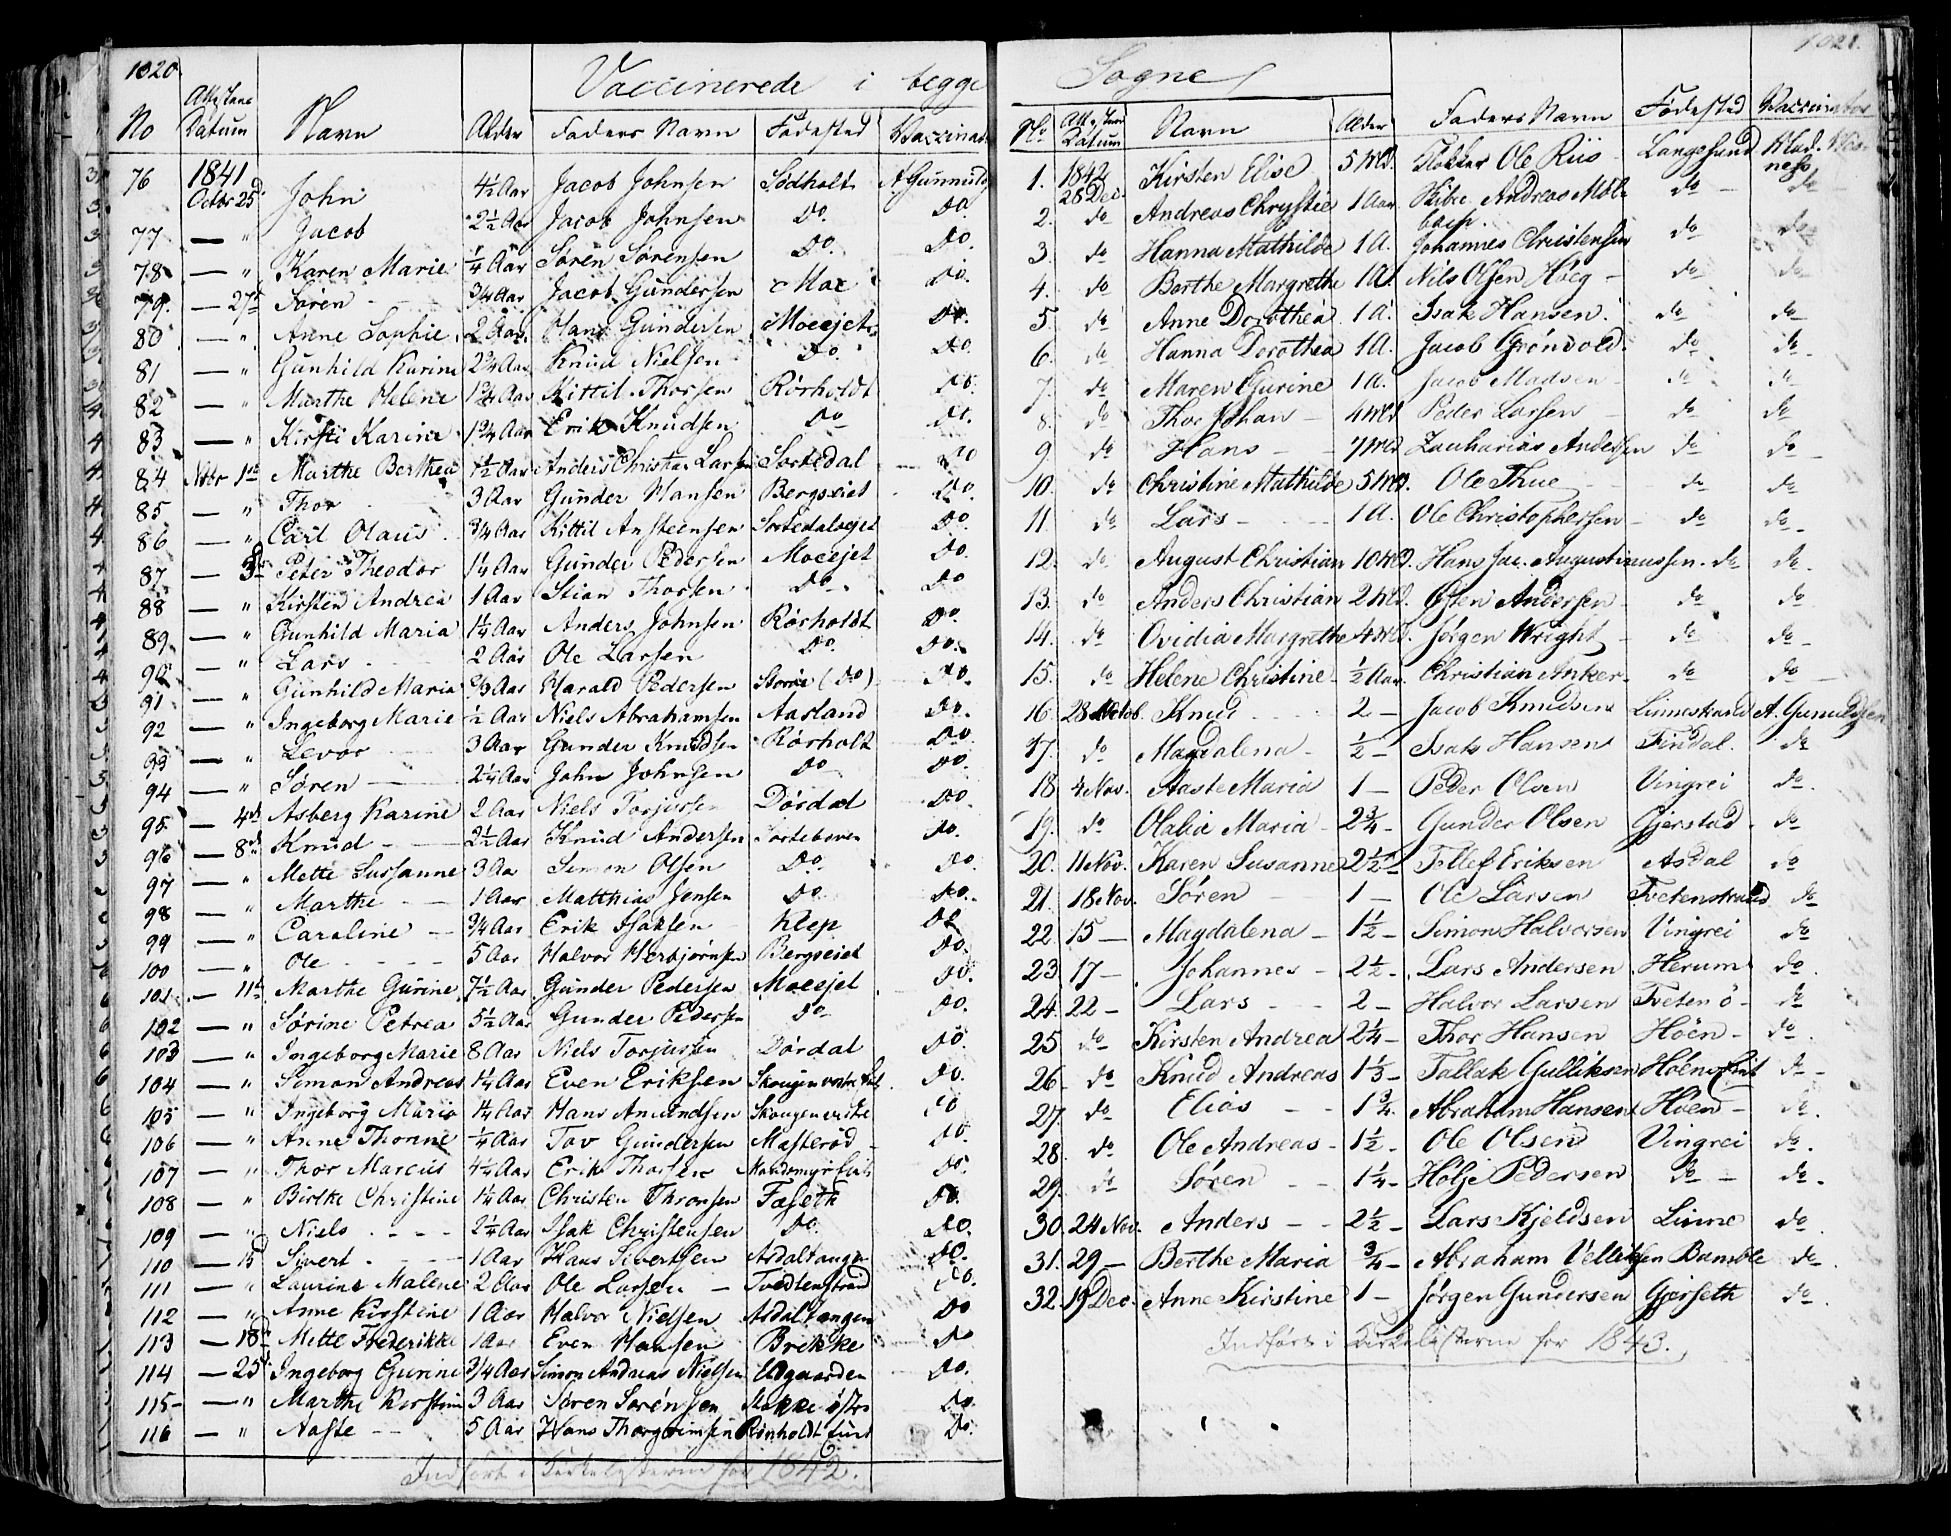 1020.
Vaccinerede i begge
No Attestans Datum Navn Alder Faders Navn Fødested Vaccinat.
76 1841 Octbr 25d. John 4½ Aar Jacob Johnsen Sødholt A Gunnulds
77 — " Jacob 2½ Aar Jacob Johnsen Do. Do.
78 — " Karen Marie ¼ Aar Søren Sørensen Do. Do.
79. — 27d Søren - ¾ Aar Jacob Gundersen Moe Do.
80 — " Anne Sophie 2 Aar Hans Gundersen Moeejet Do.
81 — " Gunhild Karine 2¾ Aar Knud Nielsen Do. Do.
82 — " Marthe Helene 1¾ Aar Kittil Thorsen Rørholdt Do.
83 — " Kirsti Karine 1¾ Aar Erik Knudsen Do Do.
84 Nvbr 1st Marthe Berthea 1½ Aar Anders Christian Larsen Sortedal Do
85 — " Thor 3 Aar Gunder Hansen Bergseiet Do.
86 — " Carl Olaus ¾ Aar Kittil Ansteensen Sortedalsejet Do
87 — 3d Peter Theodor 1¼ Aar Gunder Pedersen Moeejet Do
88 — " Kirsten Andrea 1 Aar Stian Thorsen Do. Do
89. — " Gunhild Maria 1¼ Aar Anders Johnsen Rørholdt Do.
90 — " Lars 2 Aar Ole Larsen Do. Do.
91 — " Gunhild Maria Aar Harald Pedersen (Do) Do.
92 — " Ingeborg Marie ½ Aar Niels Abrahamsen Aasland Do.
93 — " Levor 3 Aar Gunder Knudsen Rørholt Do
94 — " Søren — 2¼ Aar John Johnsen Do Do.
95. — 4d Asberg Karine 2 Aar Niels Torjusen Dørdal Do
96 — 8d Knud — 2½ Aar Knud Andersen Do.
97 — " Mette Sussanne 3 Aa Simon Olsen Do. Do.
98 — " Marthe — 1 Aar Matthias Jensen Do Do.
99 — " Caroline — ¾ Aar Erik Isaksen Klep Do
100 — " Ole - - - - 5 Aar Halvor Herbjørnsen Bergseiet Do.
101. — 11d. Marthe Gurine 7½ Aar Gunder Pedersen Moeejet Do.
102 — " Sørine Petrea 5½ Aar Gunder Pedersen Do Do.
103 — " Ingeborg Marie 8 Aar Niels Torjusen Dørdal Do.
104 — " Simon Andreas 1¼ Aar Even Eriksen Skougen vestre Do.
105 — " Ingeborg Maria 1¼ Aar Hans Amundsen Skougen vestre Do
106 — " Anne Thorine ¼ Aar Tov Gundersen Masterød Do.
107 — " Thor Marcus 4¼ Aar Erik Thorsen Do.
108 — " Birthe Christine 1¼ Aar Christen Thronsen Faseth Do.
109 — " Niels - - - - 2¼ Aar Isak Christensen Do. Do.
110 — 15 Sivert - 1 Aar Hans Sivertsen Asdaltangen Do.
111 — " Laurine Malene 2 Aar Ole Larsen — Tvedtenstrand Do.
112 — " Anne Kirstine 1 Aar Halvor Nielsen Asdaltangen Do
113 — 18d. Mette Frederikke 1 Aar Even Hansen Brekke Do
114 — 25d Ingeborg Gurine ¾ Aar Simon Andreas Nielsen Elgaarden Do.
115 — " Marthe Kirstine 3 Aar Søren Sørensen Stokke østre Do
116 — " Aaste — 5 Aar Hans Thorgrimsen Rørholdt Do.
Indført i Kirkelisterne for 1842.
1021.
Sogne
No. Attestans Datum Navn Alder Faders Navn Fødested Vaccinator
1. 1842 28 Dec. Kirsten Elise 5 Md. Klokker Ole Riis Langesund Mad.
2. do Andreas Chrystie 1 Aar Skibr. Andreas Møl- do — do
3. do Hanna Mathilde 1 A. Johannes Christensen do do
4. do Berthe Margrethe 1 A. Nils Olsen Høeg - do do
5. do Anne Dorothea 1 A. Isak Hansen. do do
6. do Hanna Dorothea 1 A. Jacob Grönvold. do do
7. do Maren Gurine 1 A. Jacob Madsen do do
8. do Thor Johan — 4 Md. Peder Larsen — do do
9 do Hans — 7 Md. Zacharias Andersen do do
10. do Christine Mathilde 5 Md. Ole Thue do do
11. do Lars - 1 A. Ole Christophersen - do do -
12. do August Christian 10 Md. Hans Jac. Augustinussen. do do.
13. do Anders Christian 2 Md. Østen Andersen do do
14. do Ovidia Margrethe 4 Md. Jørgen Wright - do do -
15. do Helene Christine ½ Aar Christian Anker. do do
16. 28 Octob. Knud - - - - 2 — Jacob Knudsen Linnestrand A. Gunnuldsen
17. do Magdalena - ½ — Isak Hansen Findal. do
18 4 Nov. Aaste Maria 1 — Peder Olsen Vingrei do.
19. do Olalia Maria - 2¾ - Gunder Olsen Gjerstad. do
20. 11 Nov. Karen Susanne 2½ - Tellef Eriksen Asdal do
21. 18 Nov. Søren 1 — Ole Larsen Tvetenstrand do
22. 15 — Magdalena — 1½ - Simon Halvorsen Vingrei do
23. 17 — Johannes - 2½ - Lars Andersen Herum do.
24. 22 — Lars - - 2 — Halvor Larsen Tveten ö - do
25 do Kirsten Andrea 2¼ - Thor Hansen Höen - do.
26 do Knud Andreas 1⅓ - Tallak Gulliksen Höen do -
27. do Elias - - 1¾. Abraham Hansen Höen - do.
28. do Ole Andreas - 1½ - Ole Olsen Vingrei do.
29. do Søren - - 1¼ - Hølje Pedersen do — do.
30. 24 Nov. Anders - - 2½ - Lars Kjeldsen Linne do
31. 29 — Berthe Maria ¾ - Abraham Bamble do
32. 19 Dec. Anne Kirstine 1 — Jørgen Gundersen Gjerseth do.
Indført i Kirkelisterne for 1843.